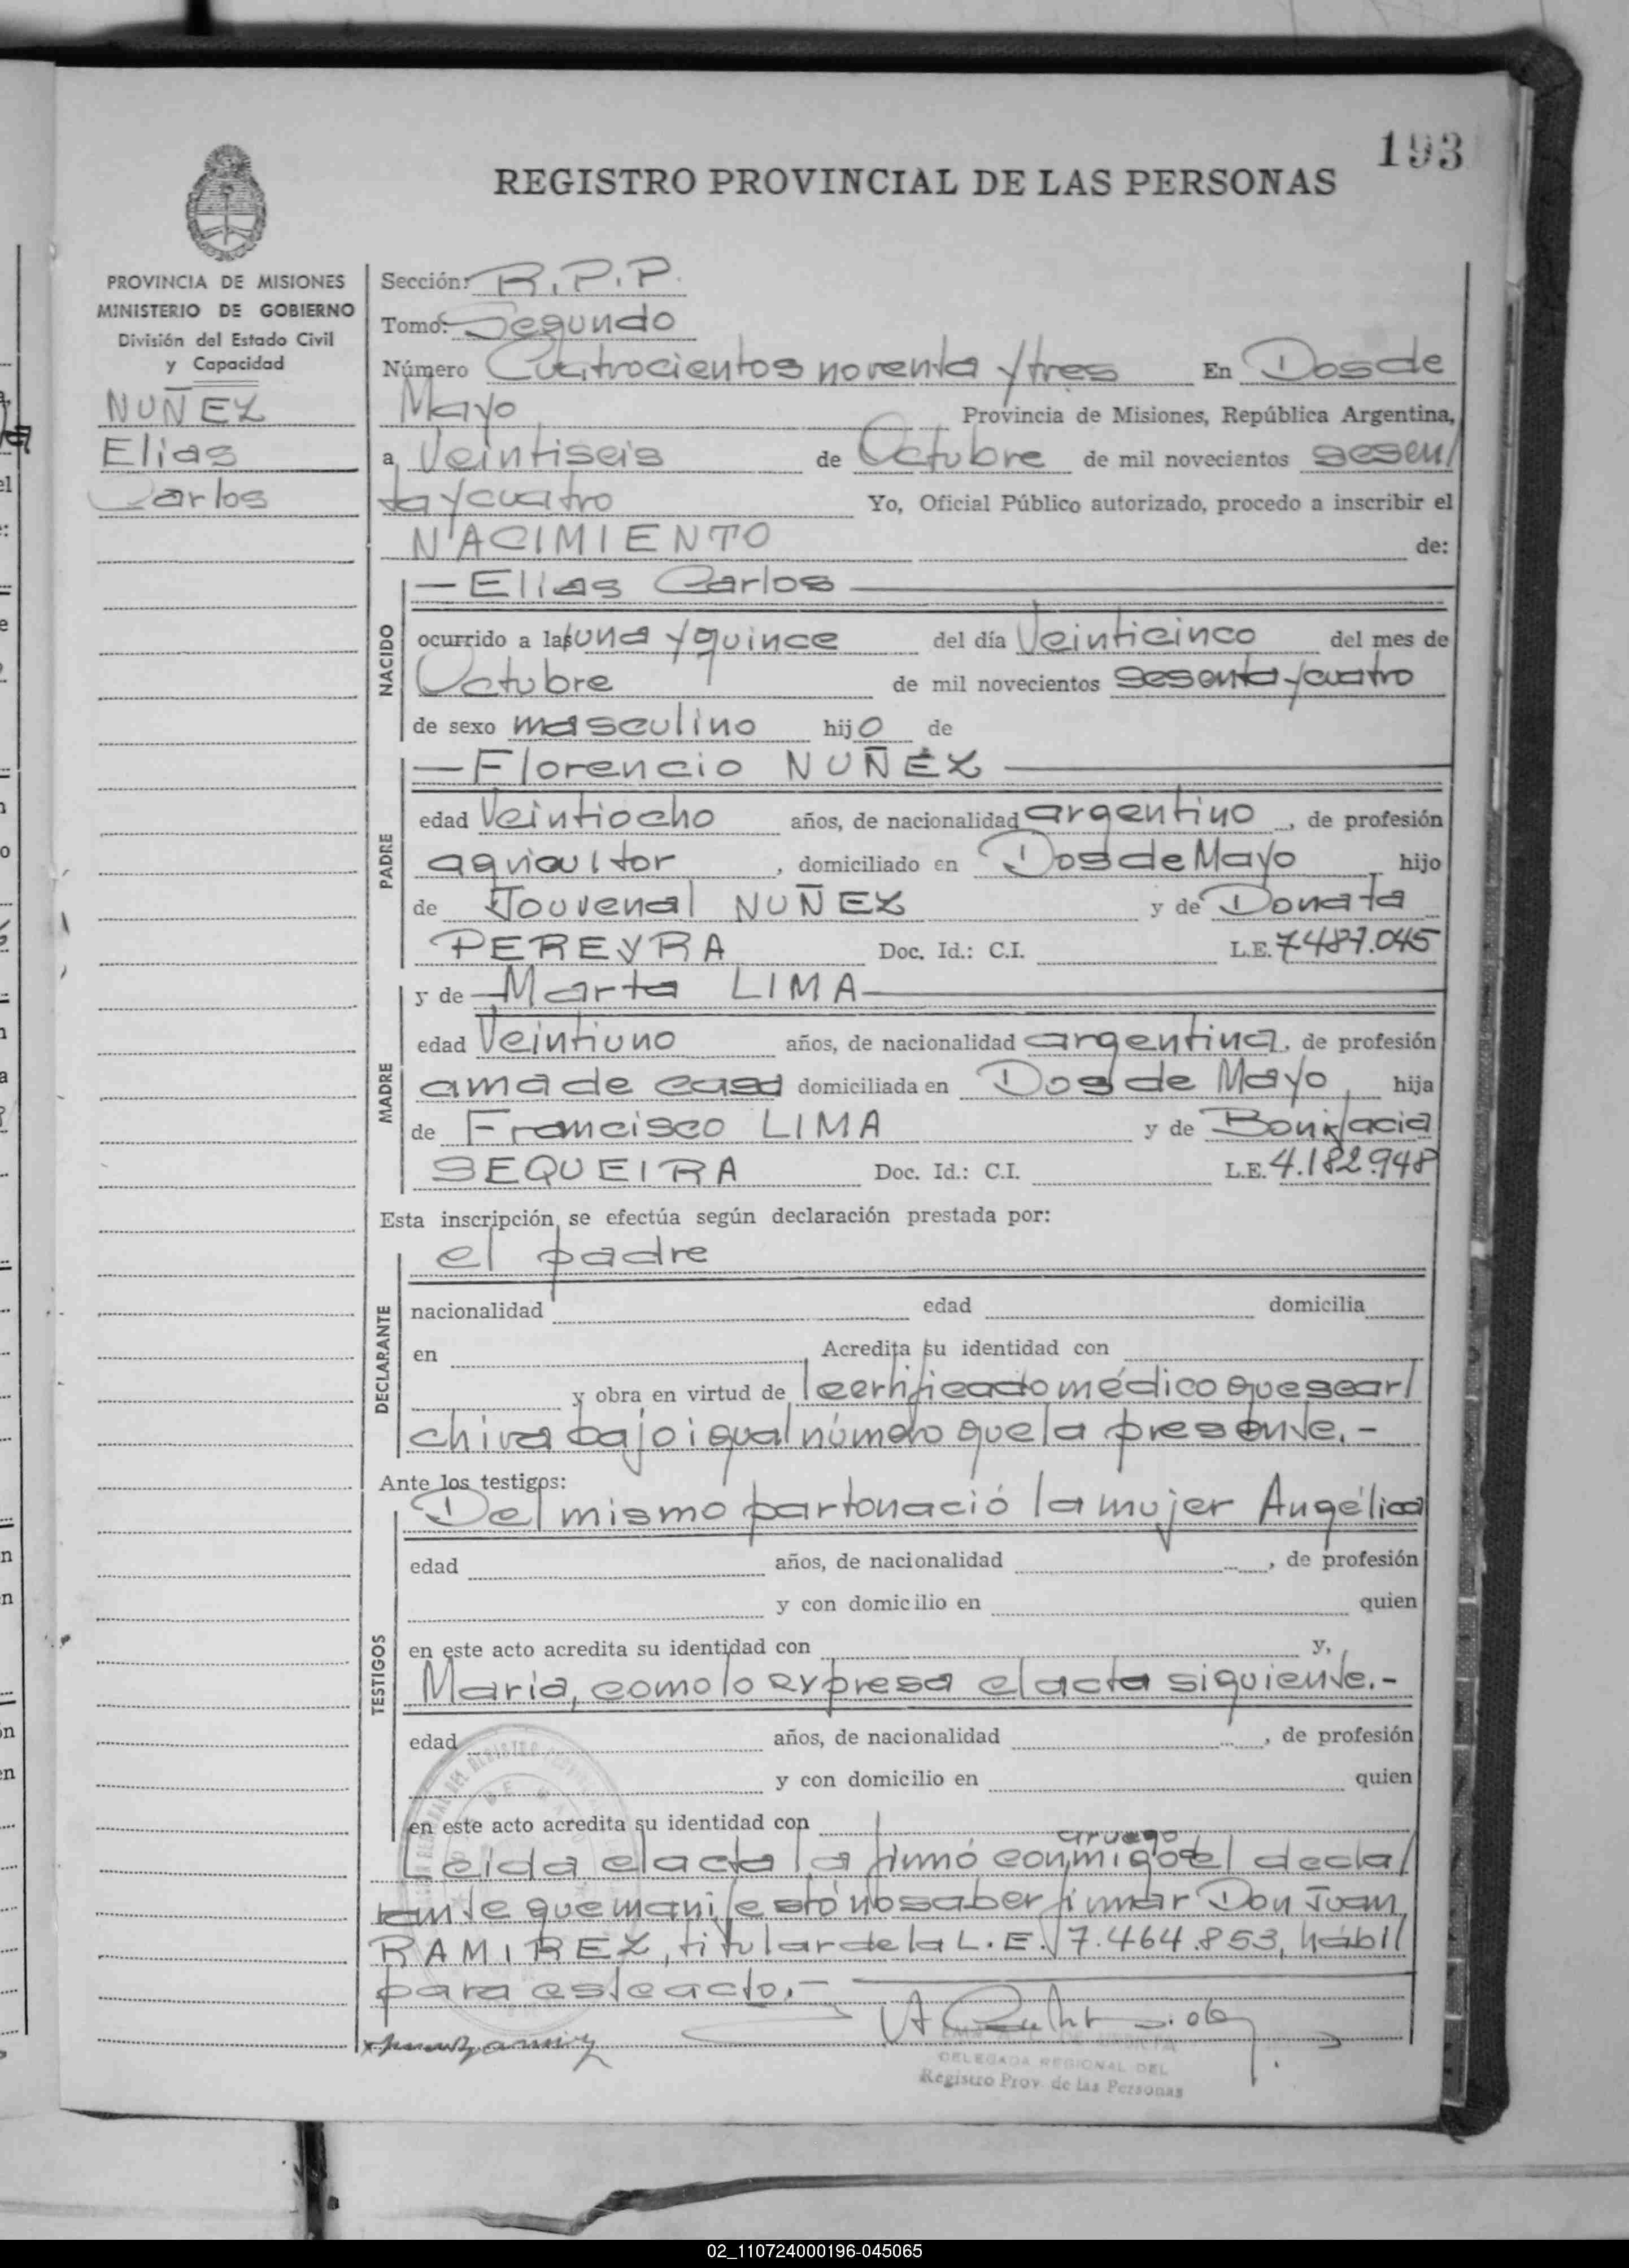 193
REGISTRO PROVINCIAL DE LAS PERSONAS
PROVINCIA DE MISIONES
MINISTERIO DE GOBIERNO
División del Estado Civil
y Capacidad
NUÑEZ
Elias
Carlos
Sección: R.P.P.
Tomo: Segundo
Número Cuatrocientos noventa y tres En Dos de
Mayo Provincia de Misiones, República Argentina,
a Veintiseis de Octubre de mil novecientos sesen/
ta y cuatro Yo, Oficial Público autorizado, procedo a inscribir el
NACIMIENTO de:
NACIDO
— Elias Carlos —
ocurrido a las una y quince del día Veinticinco del mes de
Octubre de mil novecientos sesenta y cuatro
de sexo masculino hijo de
PADRE
— Florencio NUÑEZ —
edad Veintiocho años, de nacionalidad argentino, de profesión
agricultor, domiciliado en Dos de Mayo hijo
de Jouvenal NUÑEZ y de Donata
PEREYRA Doc. Id.: C.I. L.E. 7.487.045
MADRE
y de — Marta LIMA —
edad Veintiuno años, de nacionalidad argentina, de profesión
ama de casa domiciliada en Dos de Mayo, hija
de Francisco LIMA y de Bonifacia
SEQUEIRA Doc. Id.: C.I. L.E. 4.182.948
Esta inscripción se efectúa según declaración prestada por:
DECLARANTE
el padre
nacionalidad edad domicilia
en Acredita su identidad con
y obra en virtud de / certificado médico que se ar/
chiva bajo igual número que la presente.-
Ante los testigos:
TESTIGOS
Del mismo parto nació la mujer Angélica
edad años, de nacionalidad , de profesión
y con domicilio en quien
en este acto acredita su identidad con y,
María, como lo expresa el acta siguiente.-
edad años, de nacionalidad , de profesión
y con domicilio en quien
en este acto acredita su identidad con
a ruego
Leida el acta la firmó conmigo del decla/
rante que manifestó no saber firmar Don Juan
RAMIREZ, titular de la L.E. 7.464.853, hábil
para este acto.-
DELEGADA REGIONAL DEL
Registro Prov. de las Personas
02_110724000196-045065